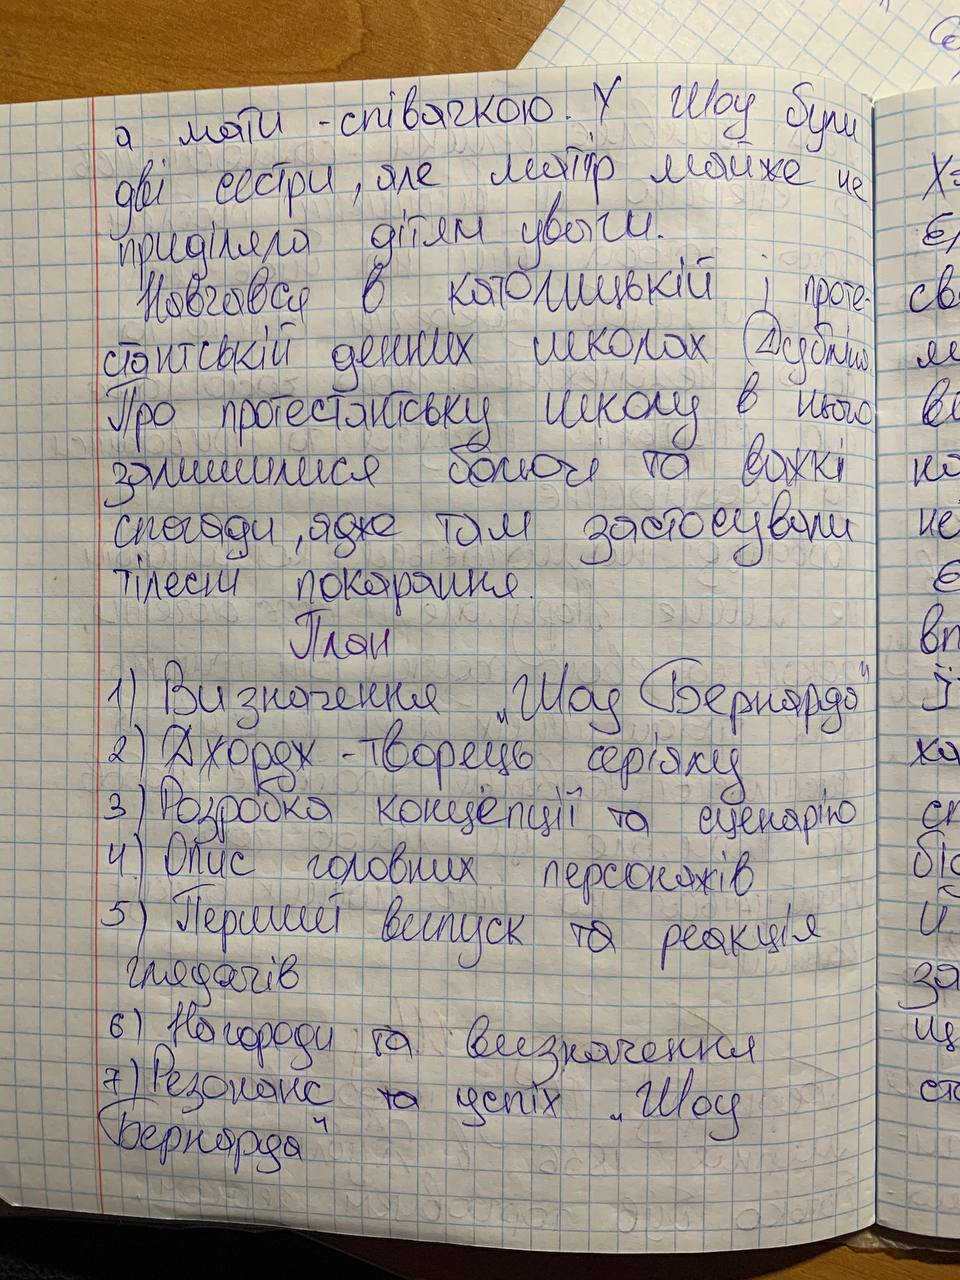 а мати - співачкою. У Шоу були
дві сестри, але матір майже не
приділяла дітям уваги.
Навчався в католицькій і проте-
стантській денних школах Дубліна.
Про протестантську школу в нього
залишилися болючі та важкі
спогади, адже там застосували
тілесні покарання.
План
1) Визначення „Шоу Бернарда"
2) Джордж - творець серіалу
3) Розробка концепції та сценарію
4) Опис головних персонажів
5) Перший випуск та реакція
глядачів
6) Нагороди та визначення
7) Резонанс та успіх „Шоу
Бернарда"